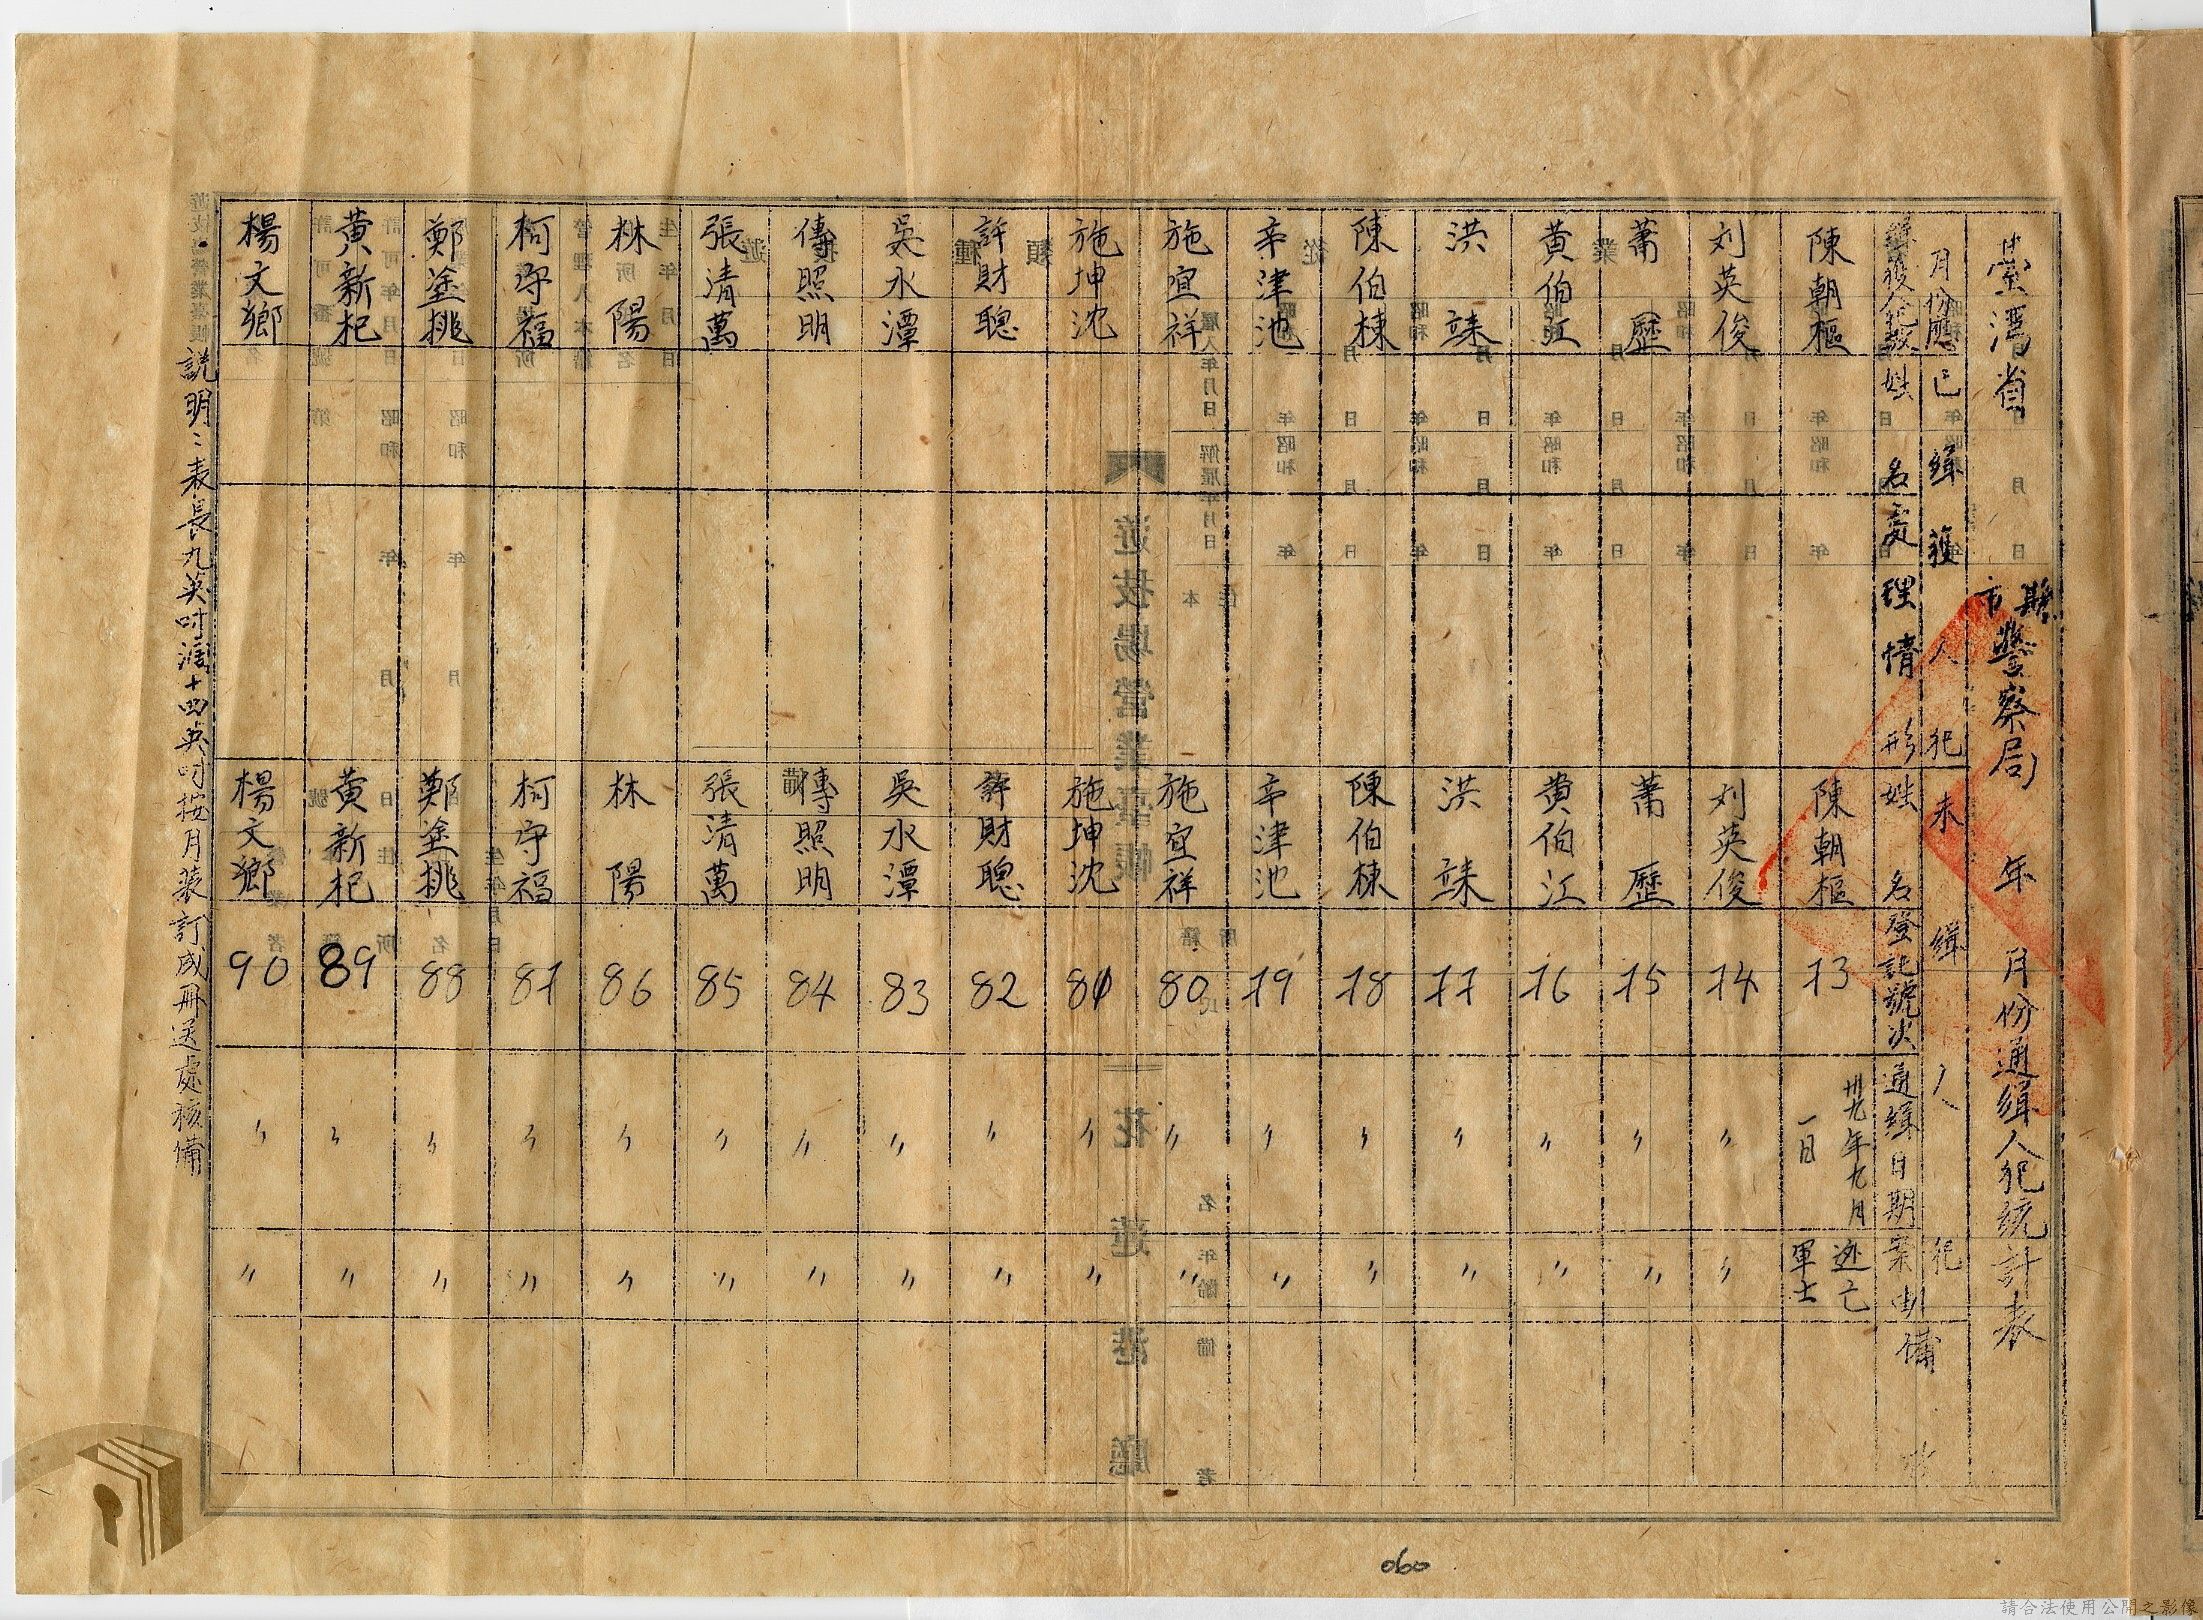 臺灣省 縣市警察局 年 月份通緝人犯統計表
月份應已緝獲人犯 未緝人犯 備考
緝獲人犯數 姓名 處理情形 姓名 登記號次 通緝日期 案由
陳朝樞 陳朝樞 73 卅九年九月一日 逃亡軍士
刘英俊 刘英俊 74 〃 〃
蕭歷 蕭歷 75 〃 〃
黄伯江 黄伯江 76 〃 〃
洪 洪 77 〃 〃
陳伯棟 陳伯棟 78 〃 〃
辛津池 辛津池 79 〃 〃
施宜祥 施宜祥 80 〃 〃
施坤沈 施坤沈 81 〃 〃
許財聰 許財聰 82 〃 〃
吳水潭 吳水潭 83 〃 〃
傳照明 傳照明 84 〃 〃
張清萬 張清萬 85 〃 〃
林陽 林陽 86 〃 〃
柯守福 柯守福 87 〃 〃
鄭塗桃 鄭塗桃 88 〃 〃
黄新杞 黄新杞 89 〃 〃
楊文鄉 楊文鄉 90 〃 〃
説明：表長九英吋濶十四英吋按月裝訂成冊送處核備
060
請合法使用公開之影像